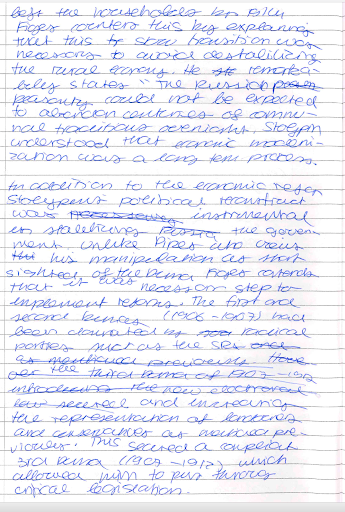 left the households by 
Figes counters this by explaining
that this slow transition was
necessary to avoid destabilizing
the rural economy. He remarka-
bly states "The Russian
peasantry could not be expected
to abandon centuries of commu-
nal traditions overnight. Stolypin
understood that economic moderni-
zation was a long term process.
In addition to the economic
Stolypin's political
was instrumental
in stabilising the govern-
ment. Unlike Pipes who
his manipulation as short
sighted of the Duma Figes contends
that it was necessary step to
implement reforms. The first and
second Dumas (1906-1907) had
been dominated by radical
parties such as the SRs
as mentioned previously.
the third Duma of 1907-1912
the new electoral
law and increasing
the representation of landowners
and conservatives as mentioned pre-
viously. This secured a cooperative
3rd Duma (1907-1912) which
allowed him to pass through
critical legislation.